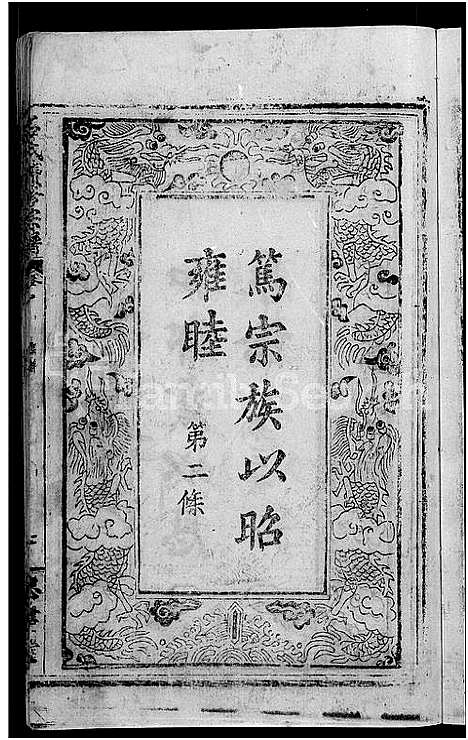 篤宗族以昭
雍睦
第二條
FamilySearch